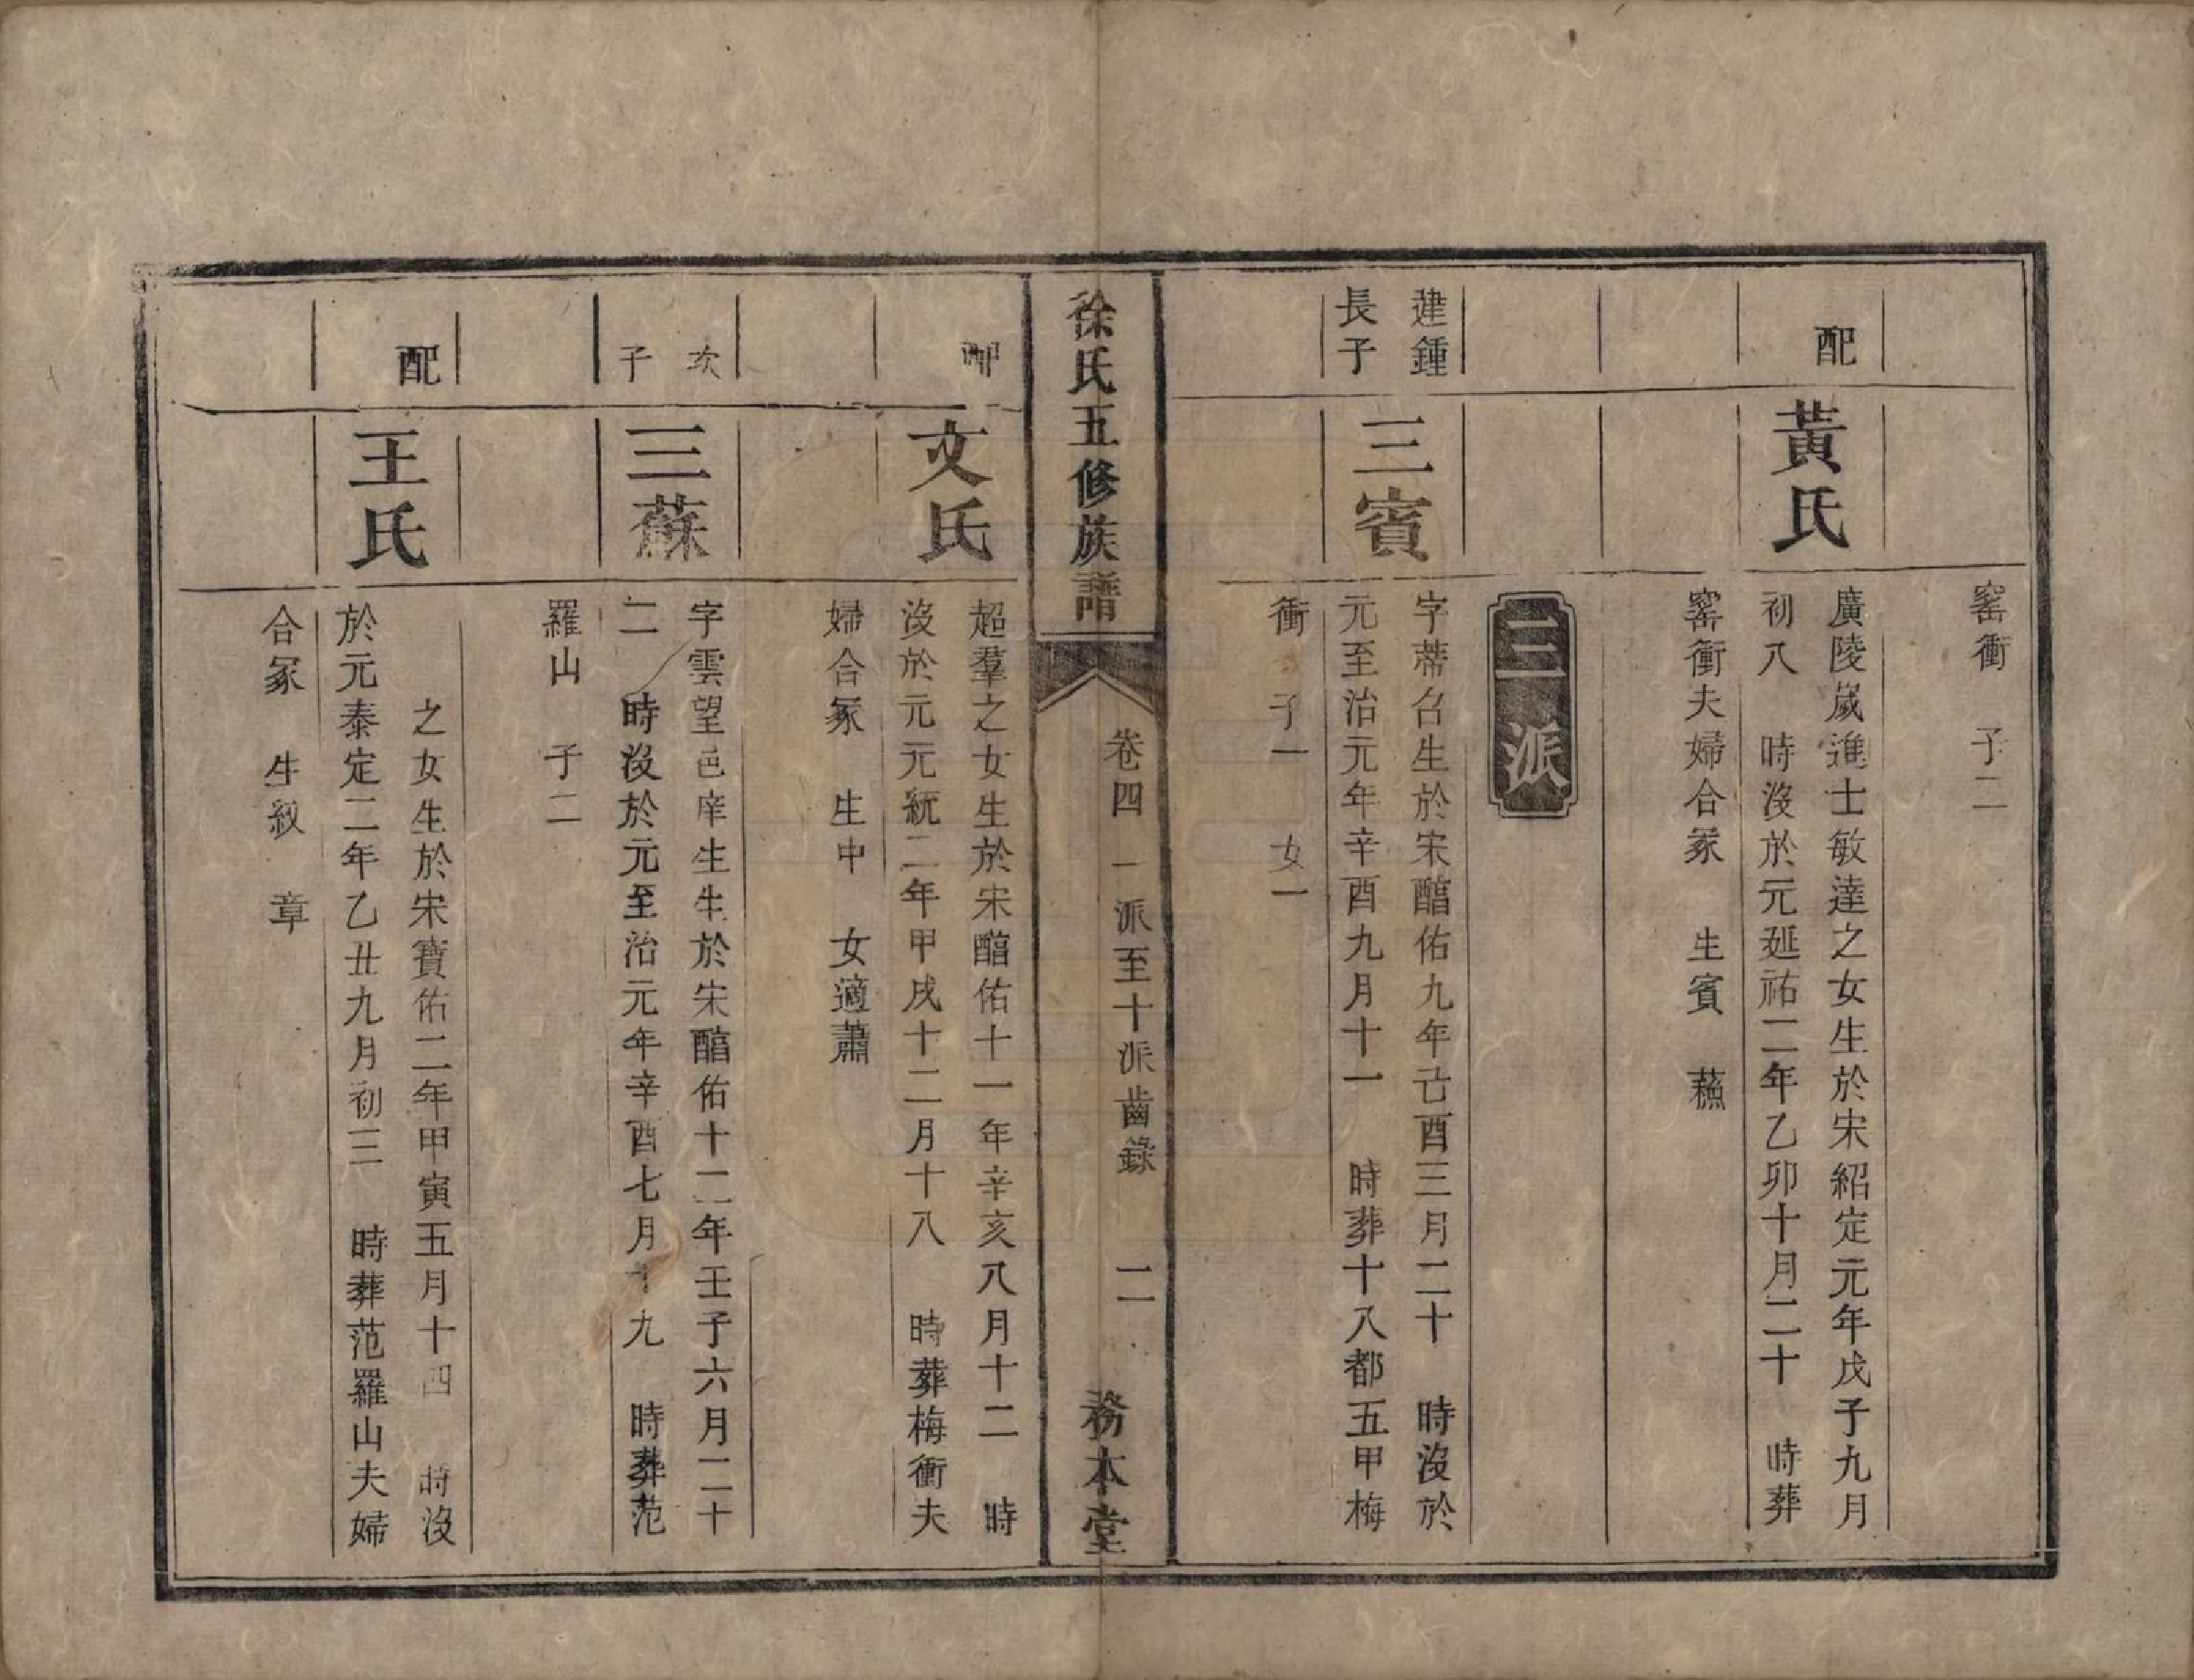 窰衝　子二
配
黃氏
廣陵嵗進士敏達之女生於宋紹定元年戊子九月
初八　時沒於元延祐二年乙卯十月二十　時葬
窰衝夫婦合冢　生賓　蘓
三派
建鍾
長子
三賓
字蒂召生於宋醕佑九年己酉三月二十　時沒於
元至治元年辛酉九月十一　時葬十八都五甲梅
衝　子一　女一
徐氏五修族譜
卷四　一派至十派齒錄　二
務本堂
配
文氏
超羣之女生於宋醕佑十一年辛亥八月十二　時
沒於元元統二年甲戌十二月十八　時葬梅衝夫
婦合冢　生中　女適蕭
次
子
三蘇
字雲望邑庠生生於宋醕佑十二年壬子六月二十
二　時沒於元至治元年辛酉七月十九　時葬范
羅山　子二
配
王氏
之女生於宋寶佑二年甲寅五月十四　時沒
於元泰定二年乙丑九月初三　時葬范羅山夫婦
合冢　生紋　章